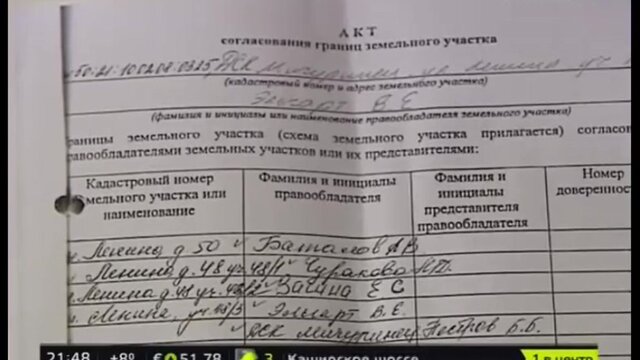 АКТ
согласования границ земельного участка
50:21:100208:0325, ДСК Мичуринец, ул Ленина уч
(кадастровый номер и адрес земельного участка)
Эльгарт В.Е
(фамилия и инициалы или наименование правообладателя земельного участка)
раницы земельного участка (схема земельного участка прилагается) согласо
равообладателями земельных участков или их представителями:
Кадастровый номер
емельного участка или
наименование
Фамилия и инициалы
правообладателя
Фамилия и
инициалы
представителя
правообладателя
Номер
доверенос
Ленина д 50 Баталов А В
Ленина д. 48 уч 48/1 Чуракова
Ленина д 48 уч. Е С
Ленина, уч 48/3 Эльгарт В. Е.
ДСК Мичуринец Пестров Б. Б.
21:48 +8° € 51.78 3 Каширское шоссе 1 в центр